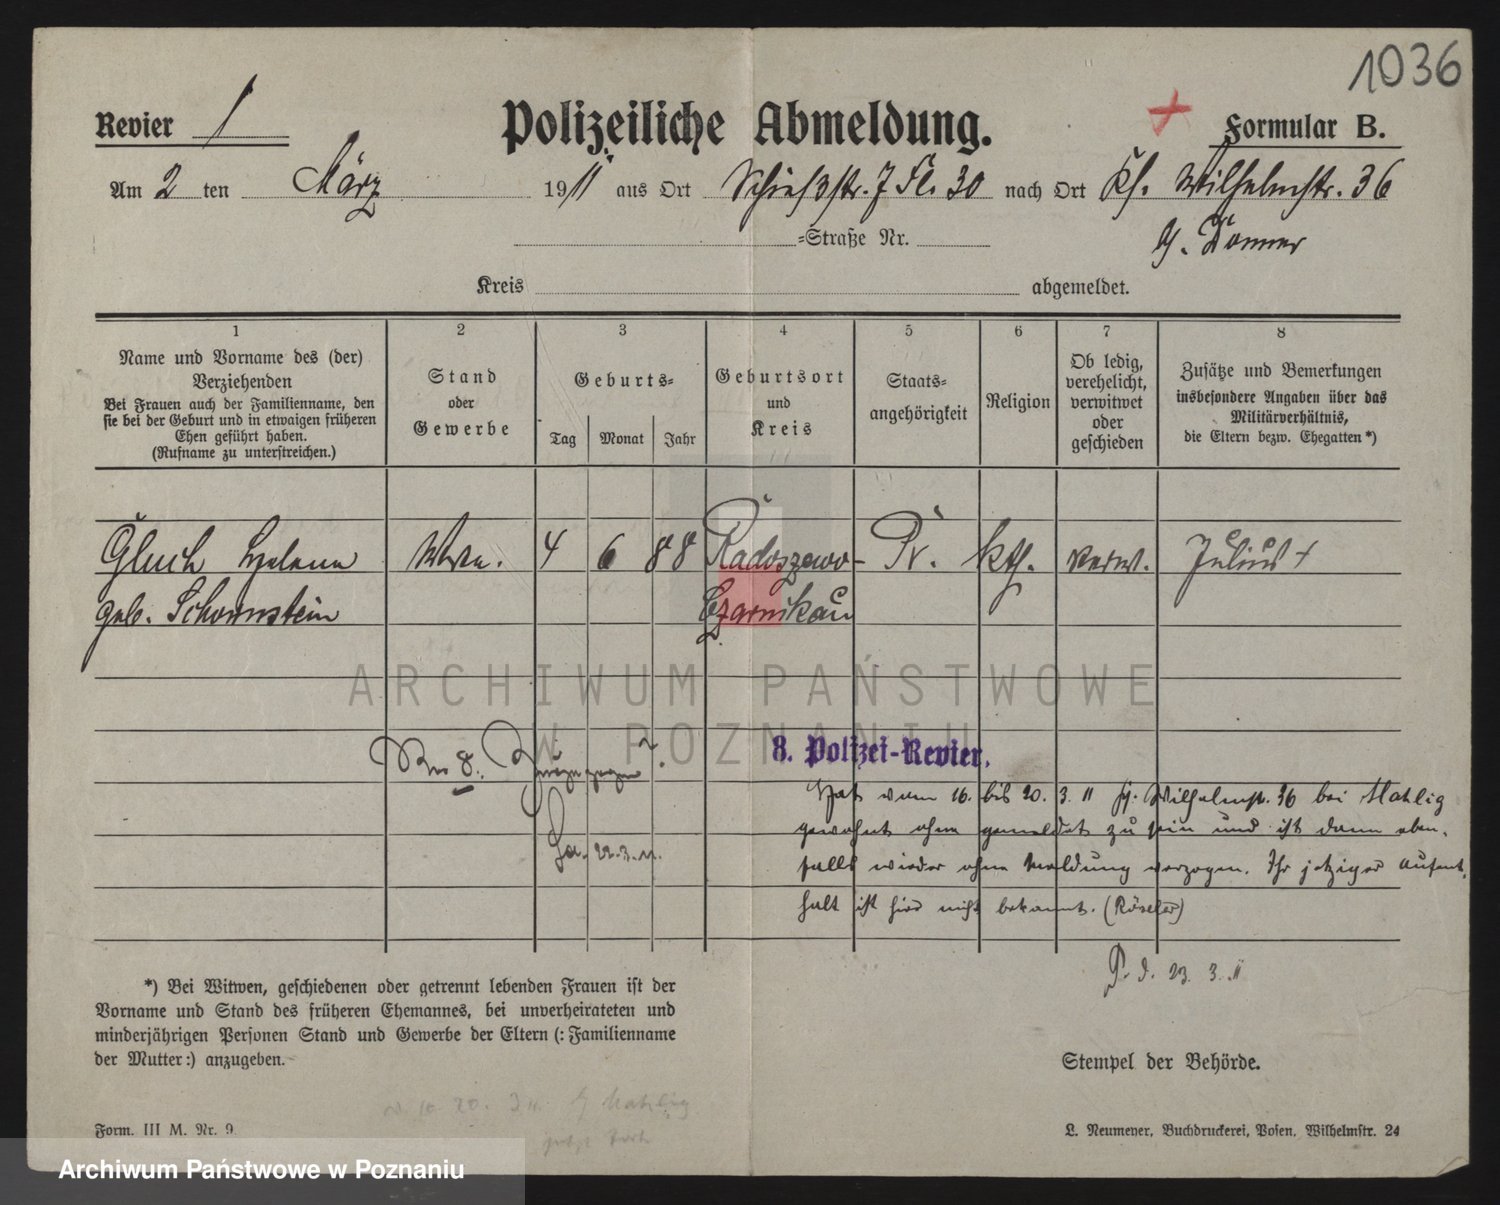 1036
Revier 1
Polizeiliche Abmeldung.
Formular B.
Am 2 ten März 1911 aus Ort Schießstr. 7 Fl. 30 nach Ort Kl. Wilhelmstr. 36
b/.
=Straße Nr.
Kreis abgemeldet.
1 2 3 4 5 6 7 8
Name und Vorname des (der)
Verziehenden
Bei Frauen auch der Familienname, den
sie bei der Geburt und in etwaigen früheren
Ehen geführt haben.
(Rufname zu unterstreichen.)
Stand
oder
Gewerbe
Geburts=
Tag Monat Jahr
Geburtsort
und
Kreis
Staats=
angehörigkeit
Religion
Ob ledig,
verehelicht,
verwitwet
oder
geschieden
Zusätze und Bemerkungen
insbesondere Angaben über das
Militärverhältnis,
die Eltern bezw. Ehegatten *)
Gluch Helene Wwe. 4 6 88 Radoszewo- Pr. kth. verw. Julius +
geb. Schornstein Czarnikau
ARCHIWUM PAŃSTWOWE
W POZNANIU
Rev 8.
8. Polizei-Revier.
Hat vom 16. bis 20. 3. 11 Wilhelmstr. 36 bei Mahlig
gewohnt ohne gemeldet zu sein und ist dann eben-
falls wieder ohne Meldung verzogen. Ihr jetziger Aufent-
halt ist hier nicht bekannt. (Röseler)
22.3.11.
P. d. 23. 3. 11
*) Bei Witwen, geschiedenen oder getrennt lebenden Frauen ist der
Vorname und Stand des früheren Ehemannes, bei unverheirateten und
minderjährigen Personen Stand und Gewerbe der Eltern (: Familienname
der Mutter:) anzugeben.
Stempel der Behörde.
Form. III M. Nr. 9
L. Neumeyer, Buchdruckerei, Posen, Wilhelmstr. 24
Archiwum Państwowe w Poznaniu